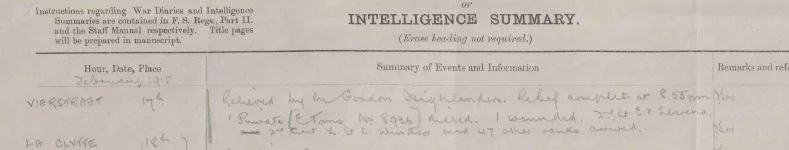 or
Instructions regarding War Diaries and Intelligence
Summaries are contained in F. S. Regs., Part II.
and the Staff Manual respectively. Title pages
will be prepared in manuscript.
INTELLIGENCE SUMMARY.
(Erase heading not required.)
Hour, Date, Place
Summary of Events and Information
Remarks and refe
February 1915
VIERSTRAAT 17th
Relieved by the Gordon Highlanders. Relief complete at 8.55 pm
1 Private (E Tame No 8936) killed. 1 wounded. 2nd Lt
2nd Lieut and 47 other ranks arrived.
LA CLYTTE 18th